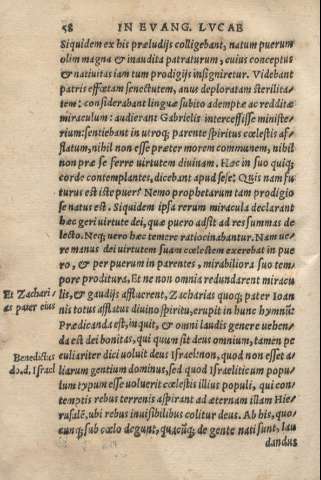 58 IN EVANG. LVCAE
Siquidem ex his præludijs colligebant, natum puerum
olim magna & inaudita patraturum, cuius conceptus
& natiuitas iam tum prodigijs insigniretur. Videbant
patris effœtam senectutem, anus deploratam sterilita-
tem: considerabant linguæ subito ademptæ ac redditæ
miraculum: audierant Gabrielis intercessisse ministe-
rium: sentiebant in utroq; parente spiritus cœlestis af-
flatum, nihil non esse præter morem communem, nihil
non præ se ferre uirtutem diuinam. Hæc in suo quisq;
corde contemplantes, dicebant apud sese: Quis nam fu-
turus est iste puer? Nemo prophetarum tam prodigio
se natus est. Siquidem ipsa rerum miracula declarant
hæc geri uirtute dei, quæ puero adsit ad res summas de
lecto. Neq; uero hæc temere ratiocinabantur. Nam ue-
re manus dei uirtutem suam cœlestem exerebat in pue
ro, & per puerum in parentes, mirabiliora suo tem-
pore proditura. Et ne non omnia redundarent miracu
Et Zachari-
as pater eius
lis, & gaudijs affluerent, Zacharias quoq; pater Ioan
nis totus afflatus diuino spiritu, erupit in hunc hymnū:
Prædicanda est, inquit, & omni laudis genere uehen-
da est dei bonitas, qui quum sit deus omnium, tamen pe
Benedictus
do. d. Israel
culiariter dici uoluit deus Israel: non, quod non esset a-
liarum gentium dominus, sed quod Israeliticum popu-
lum typum esse uoluerit cœlestis illius populi, qui con-
temptis rebus terrenis aspirant ad æternam illam Hie-
rusalē, ubi rebus inuisibilibus colitur deus. Ab his, quo-
cunq; sub cœlo degunt, quacūq; de gente nati sunt, lau
dandus